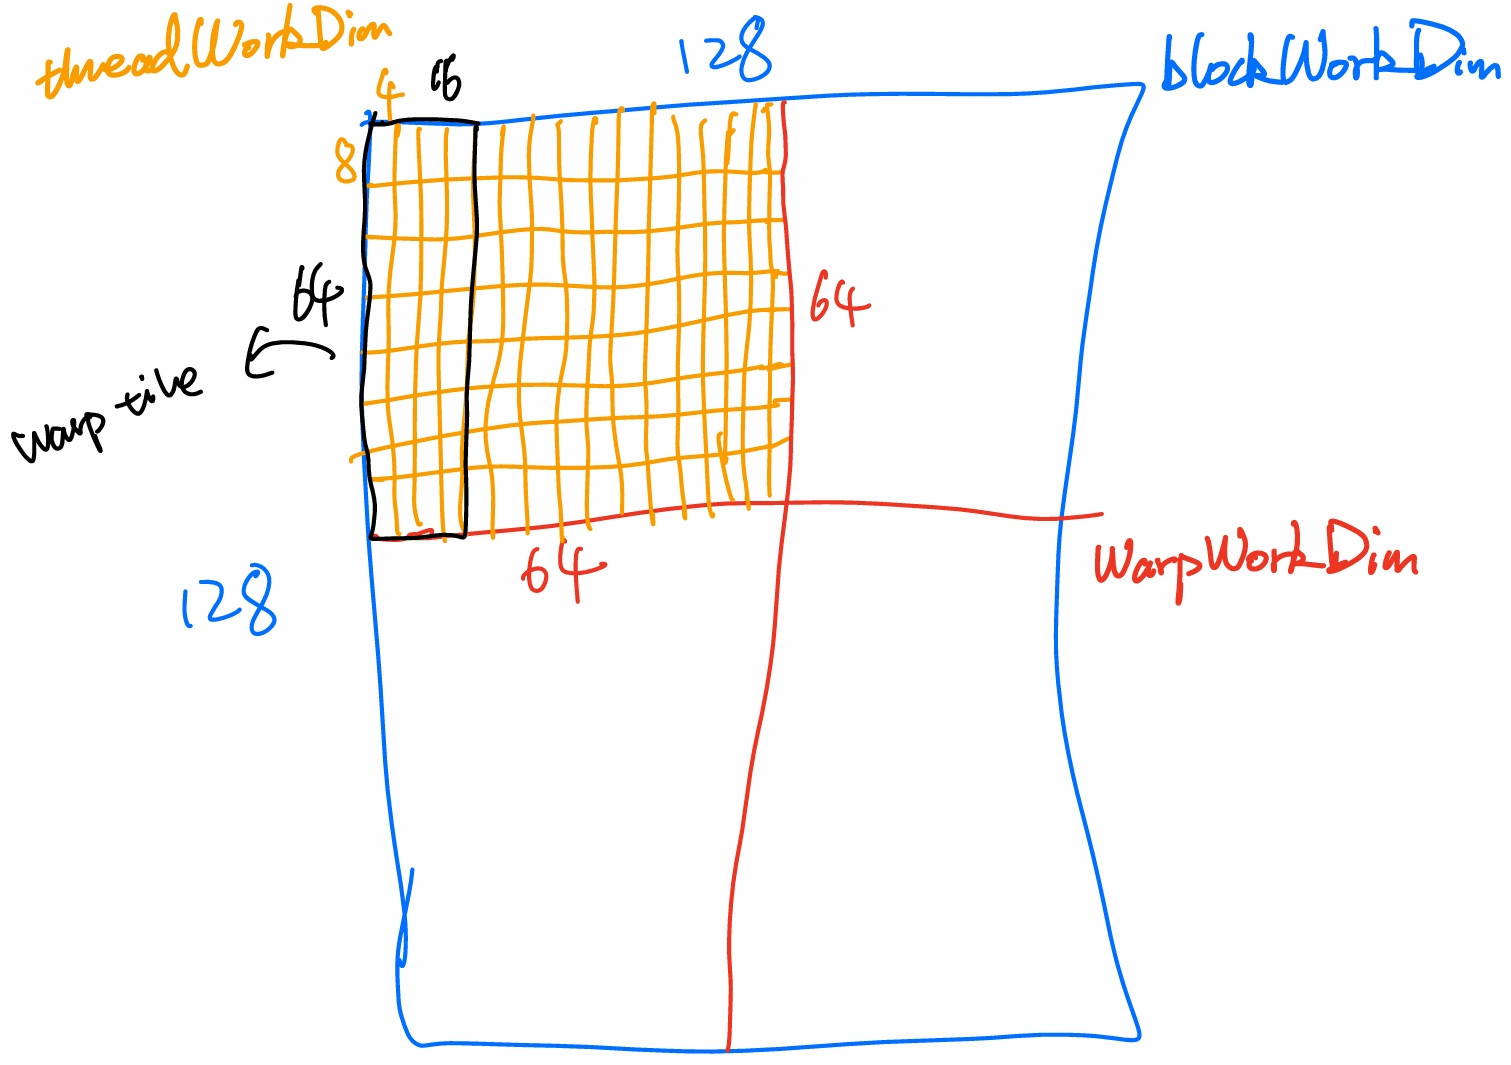 threadWorkDim
4
16
128
blockWorkDim
8
64
64
warp tile
64
WarpWorkDim
128